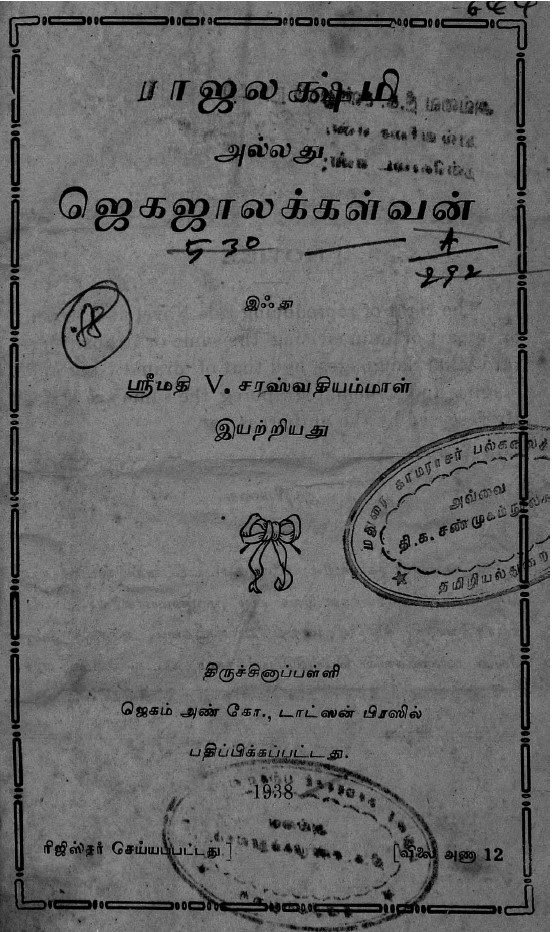 ராஜலக்ஷ்மி
அல்லது
ஜெகஜாலக்கள்வன்
530
A
292
இஃது
ஸ்ரீமதி V. சரஸ்வதியம்மாள்
இயற்றியது
மதுரை காமராசர்
அவ்வை
தி.க. சண்முகம்
தமிழியல்துறை
திருச்சினாப்பள்ளி
ஜெகம் அண் கோ., டாட்ஸன் பிரஸில்
பதிப்பிக்கப்பட்டது.
1938
ரிஜிஸ்தர் செய்யப்பட்டது.] [விலை அணா 12